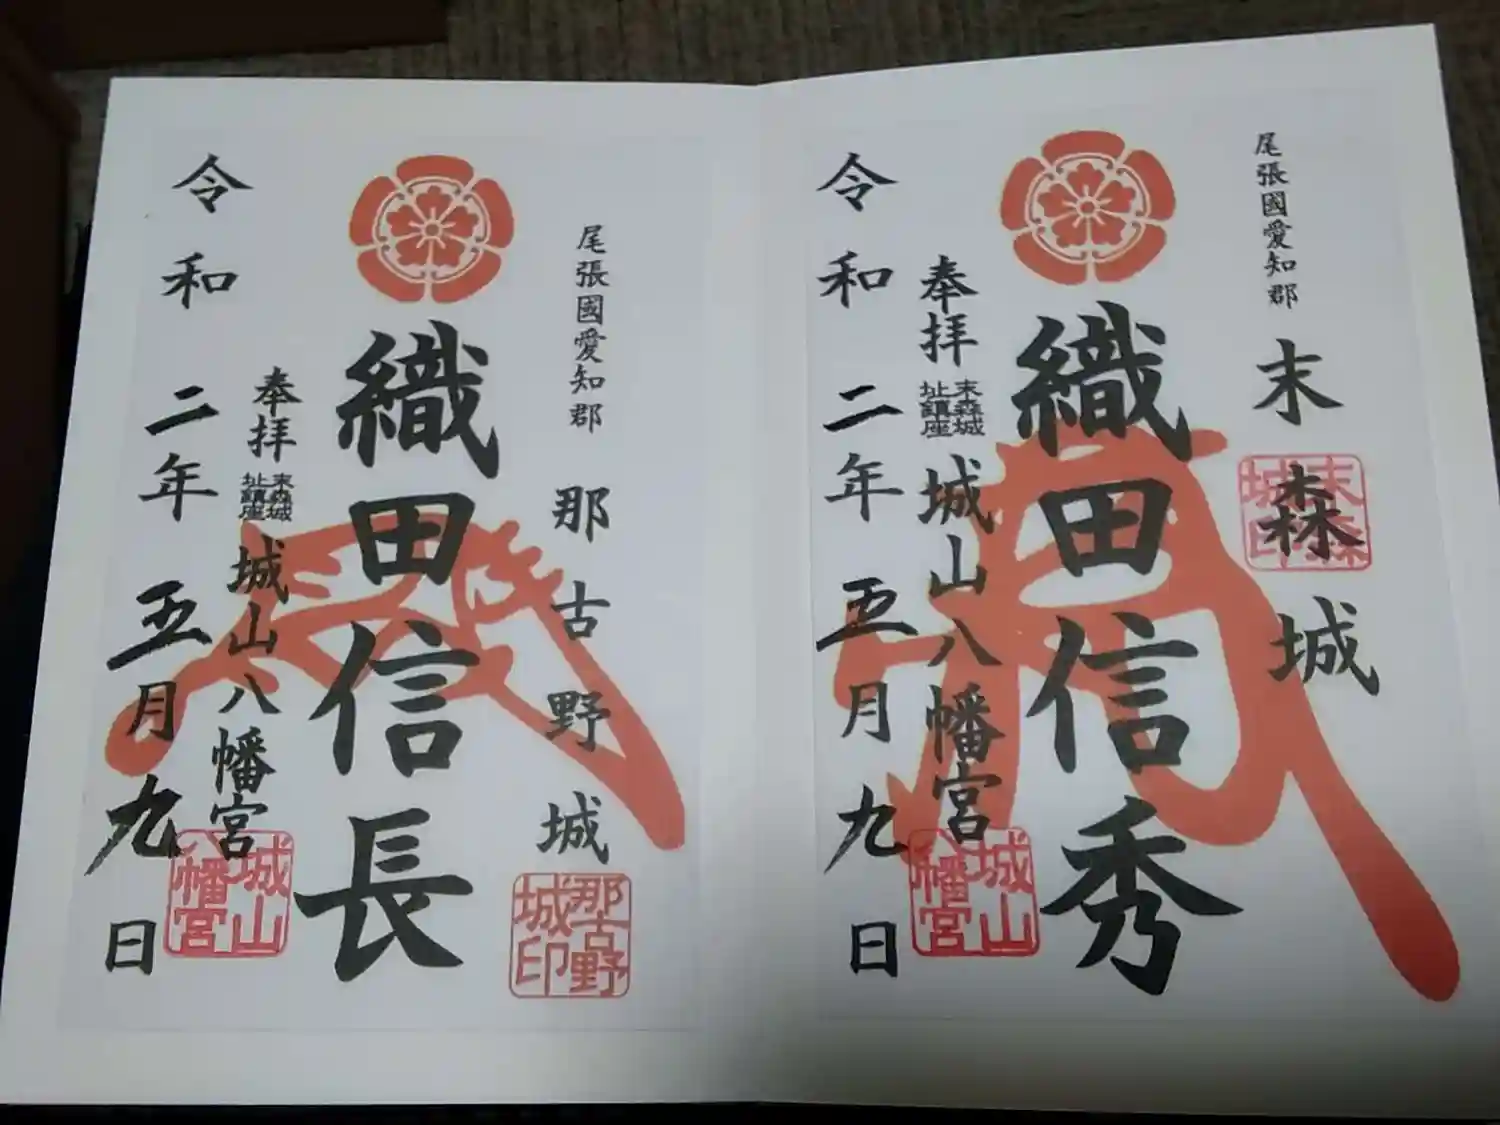 尾張國愛知郡 末森城
末森城印
織田信秀
奉拝 末森城址鎮座 城山八幡宮
城山八幡宮
令和二年五月九日
尾張國愛知郡 那古野城
那古野城印
織田信長
奉拝 末森城址鎮座 城山八幡宮
城山八幡宮
令和二年五月九日